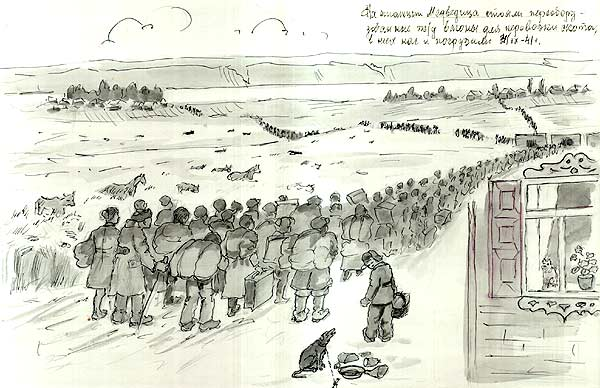 На станции Медведица стояли переобору-
дованные вагоны для перевозки скота,
в них нас и погрузили IX-41г.